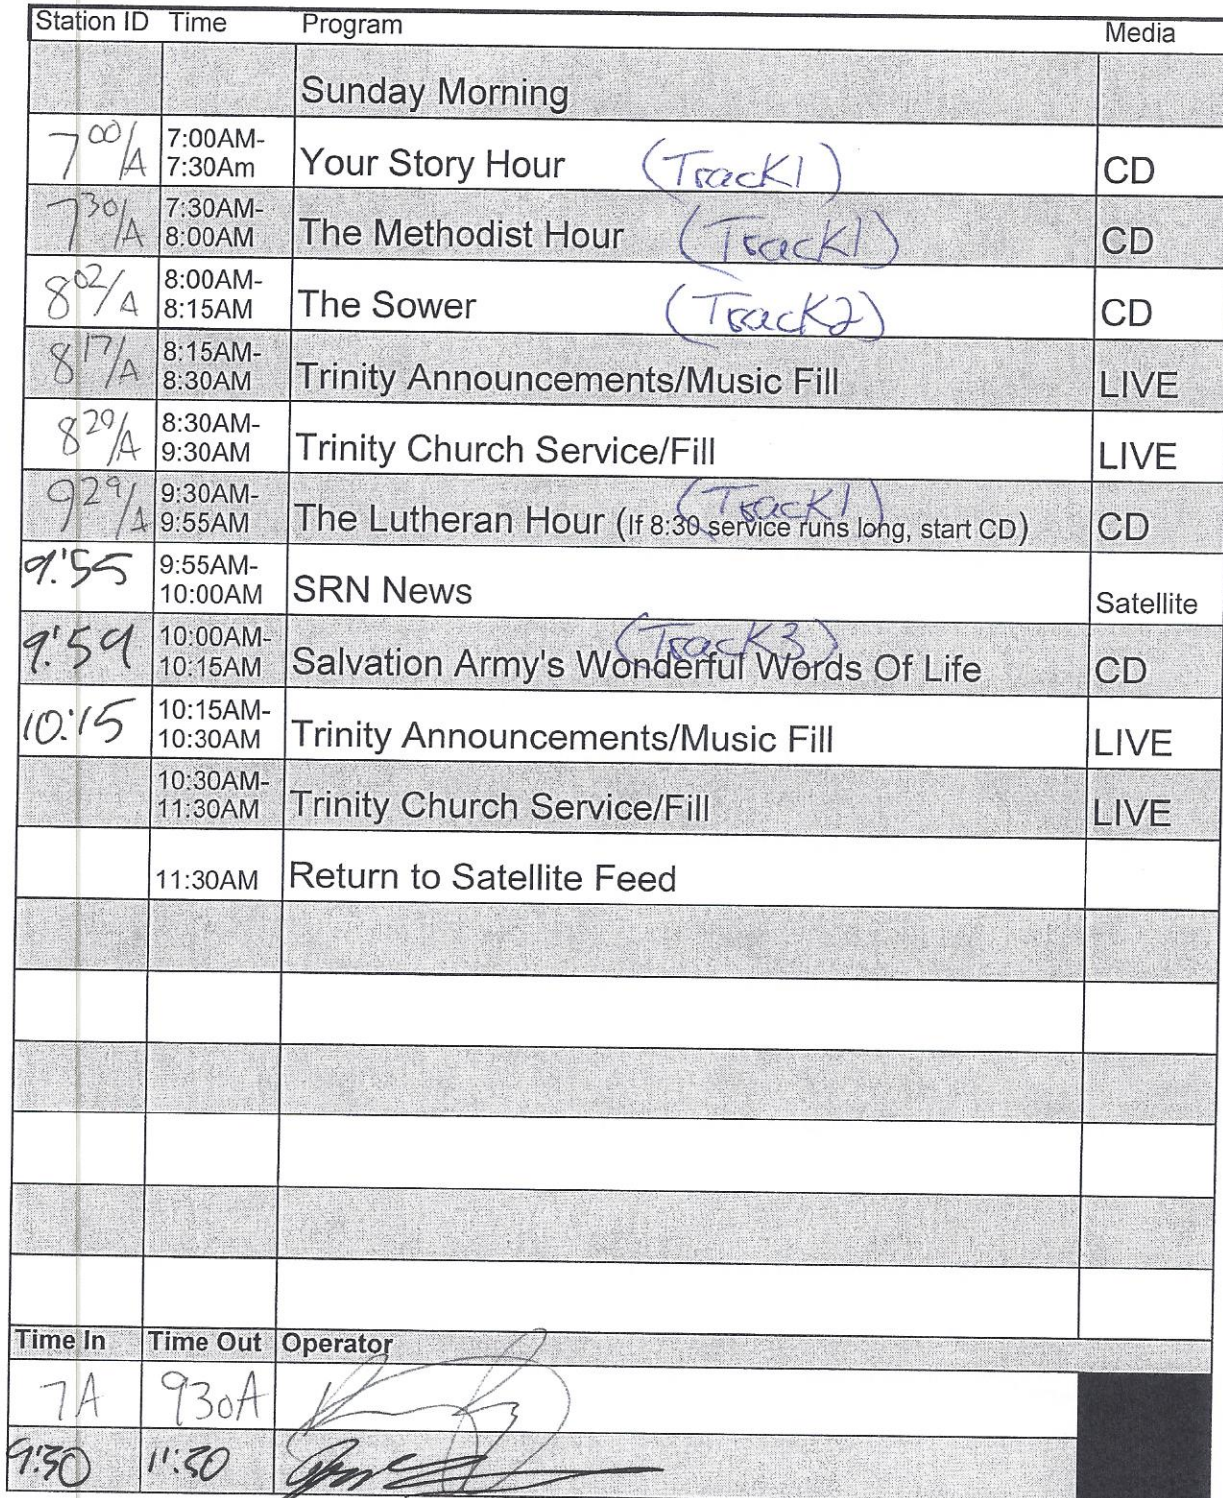 Station ID Time Program Media
Sunday Morning
7 00/A 7:00AM-7:30Am Your Story Hour (Track1) CD
7 30/A 7:30AM-8:00AM The Methodist Hour (Track1) CD
8 02/A 8:00AM-8:15AM The Sower (Track2) CD
8 17/A 8:15AM-8:30AM Trinity Announcements/Music Fill LIVE
8 29/A 8:30AM-9:30AM Trinity Church Service/Fill LIVE
9 29/A 9:30AM-9:55AM The Lutheran Hour (If 8:30 service runs long, start CD) (Track1) CD
9:55 9:55AM-10:00AM SRN News Satellite
9:59 10:00AM-10:15AM Salvation Army's Wonderful Words Of Life (Track3) CD
10:15 10:15AM-10:30AM Trinity Announcements/Music Fill LIVE
10:30AM-11:30AM Trinity Church Service/Fill LIVE
11:30AM Return to Satellite Feed
Time In Time Out Operator
7A 930A
9:30 11:30